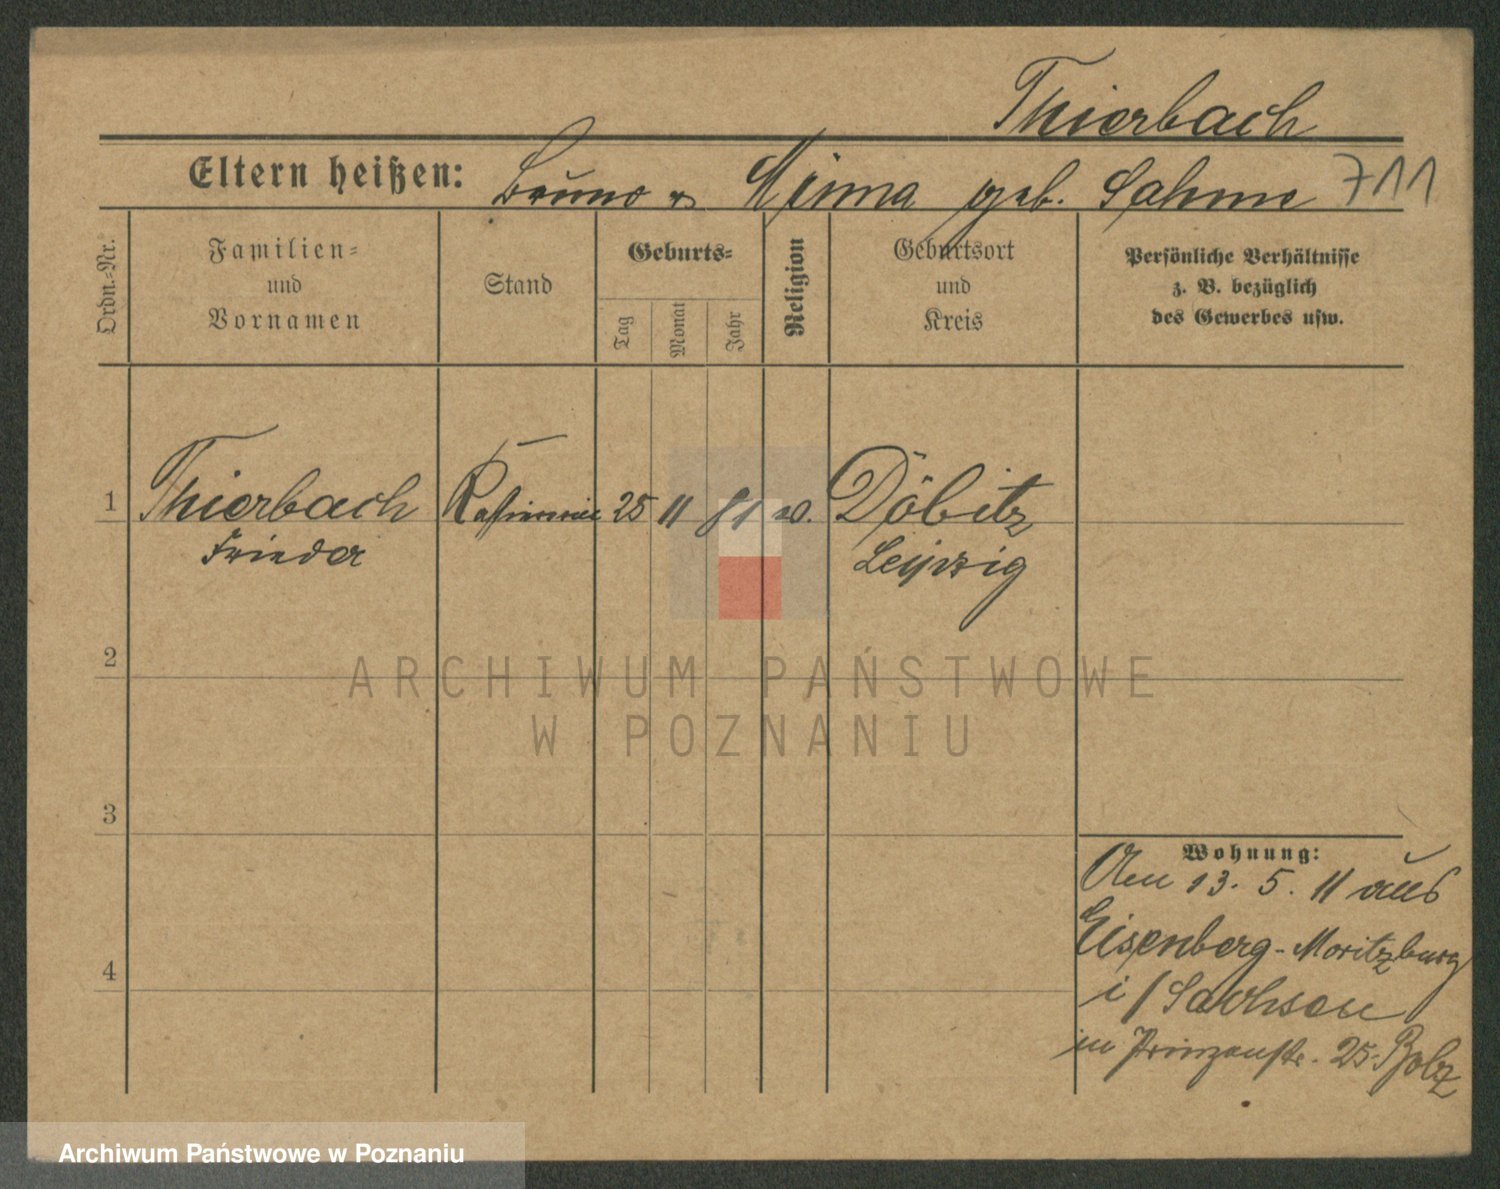 Thierbach
Eltern heißen: Bruno u Minna geb. Sahme 711
Ordn.-Nr.
Familien-
und
Vornamen
Stand
Geburts-
Tag
Monat
Jahr
Religion
Geburtsort
und
Kreis
Persönliche Verhältnisse
z. B. bezüglich
des Gewerbes usw.
1 Thierbach 25 11 81 Döbitz
Frieder Leipzig
2
3
4
Wohnung:
Am 13. 5. 11 aus
Eisenberg-Moritzburg
i/Sachsen
in Prinzenstr. 25
ARCHIWUM PAŃSTWOWE
W POZNANIU
Archiwum Państwowe w Poznaniu